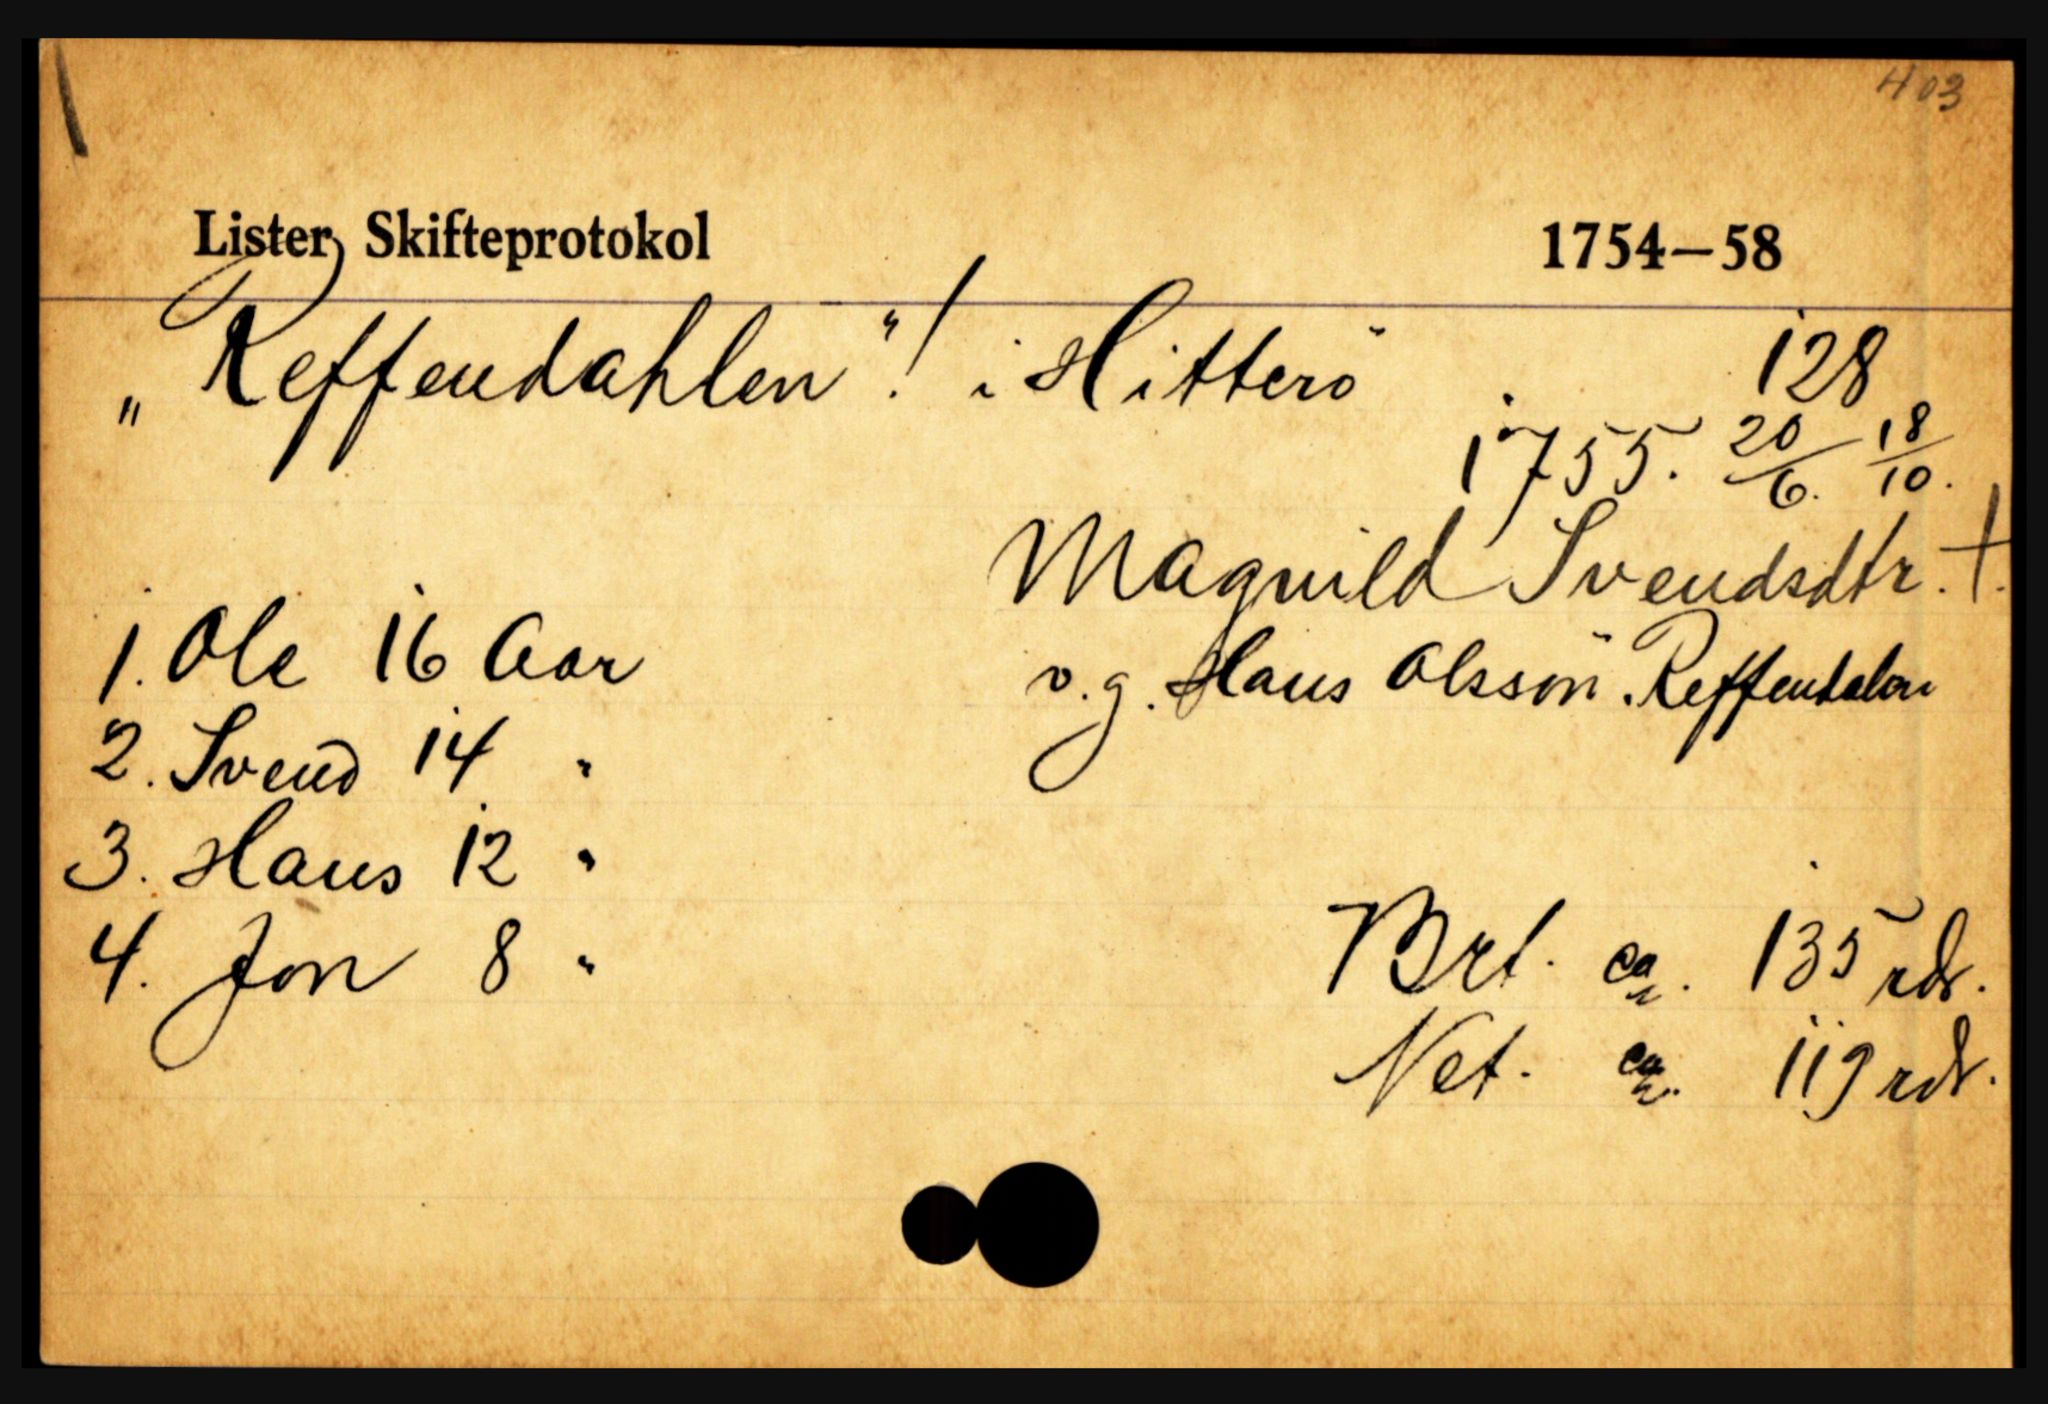 403
Lister Skifteprotokol 1754—58
„Reffendahlen"! i Hitterö 128
1755. 20/6. 18/10.
Magnild Svendsdtr. †.
1. Ole 16 Aar
v. g. Hans Olssön. Reffendalen
2. Svend 14 "
3. Hans 12 "
4. Jon 8 "
Brt. ca. 135 rdr.
Net. ca. 119 rdr.